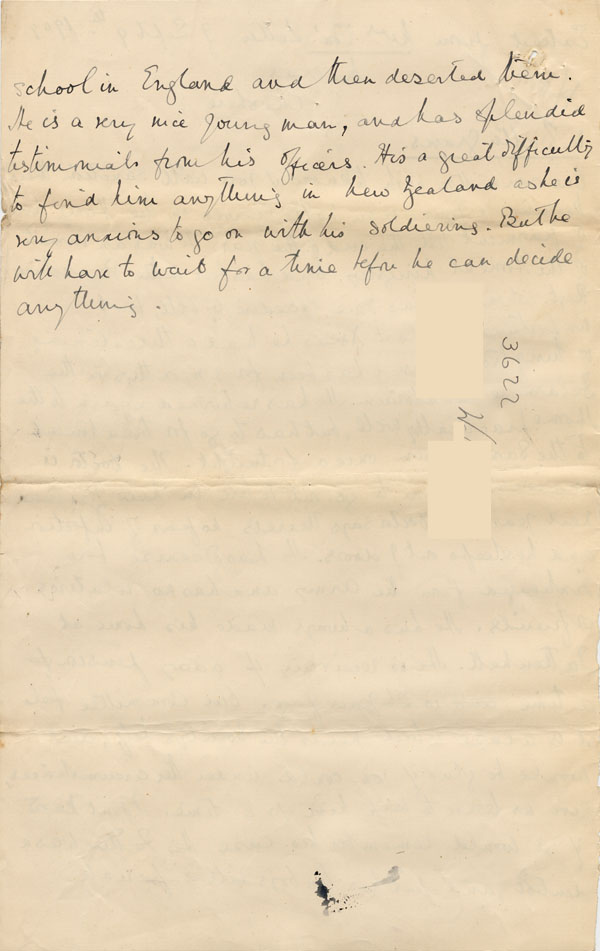 school in England and then deserted them.
He is a very nice young man, and has splendid
testimonials from his officers. His a great difficulty
to find him anything in New Zealand as he is
very anxious to go on with his soldiering. But he
will have to wait for a time before he can decide
anything.
3622